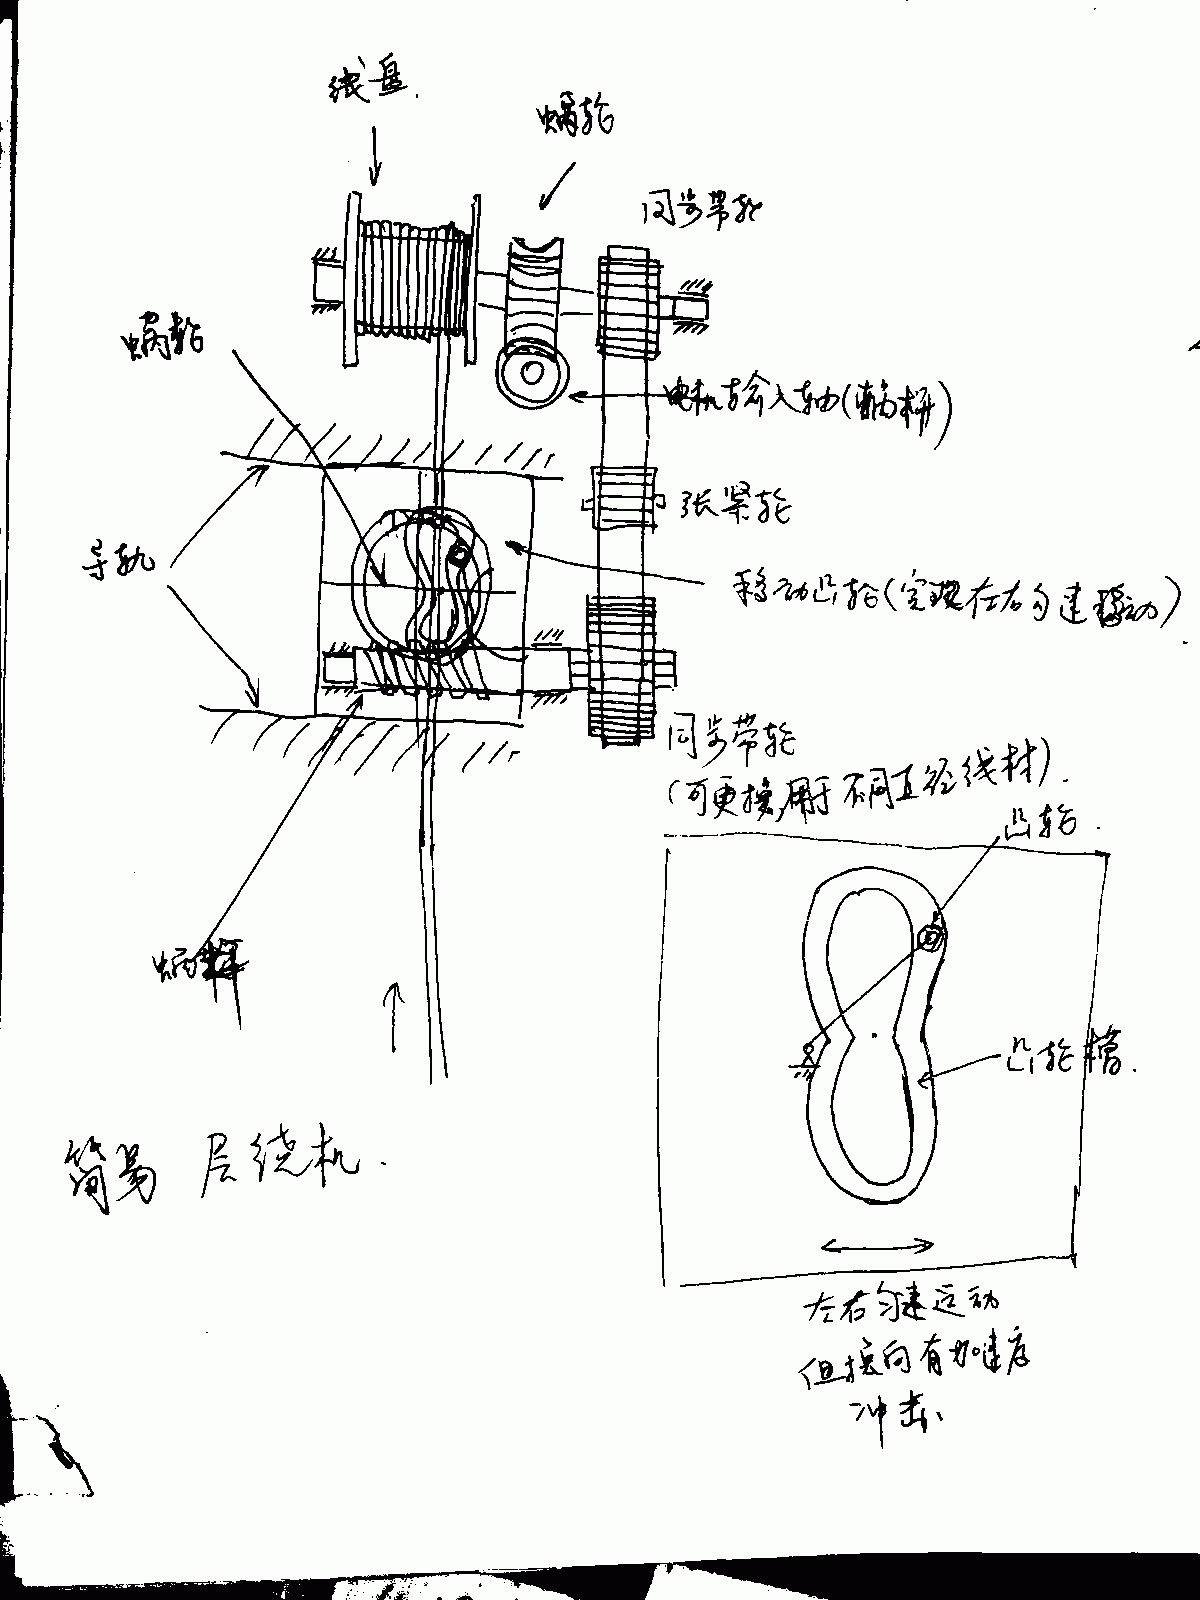 线盘.
蜗轮
同步带轮
蜗轮
电机输入轴(蜗杆)
张紧轮
导轨
移动凸轮(实现左右匀速移动)
同步带轮
(可更换,用于不同直径线材).
凸轮.
蜗杆
凸轮槽.
简易 层绕机.
左右匀速运动
但换向有加速度
冲击